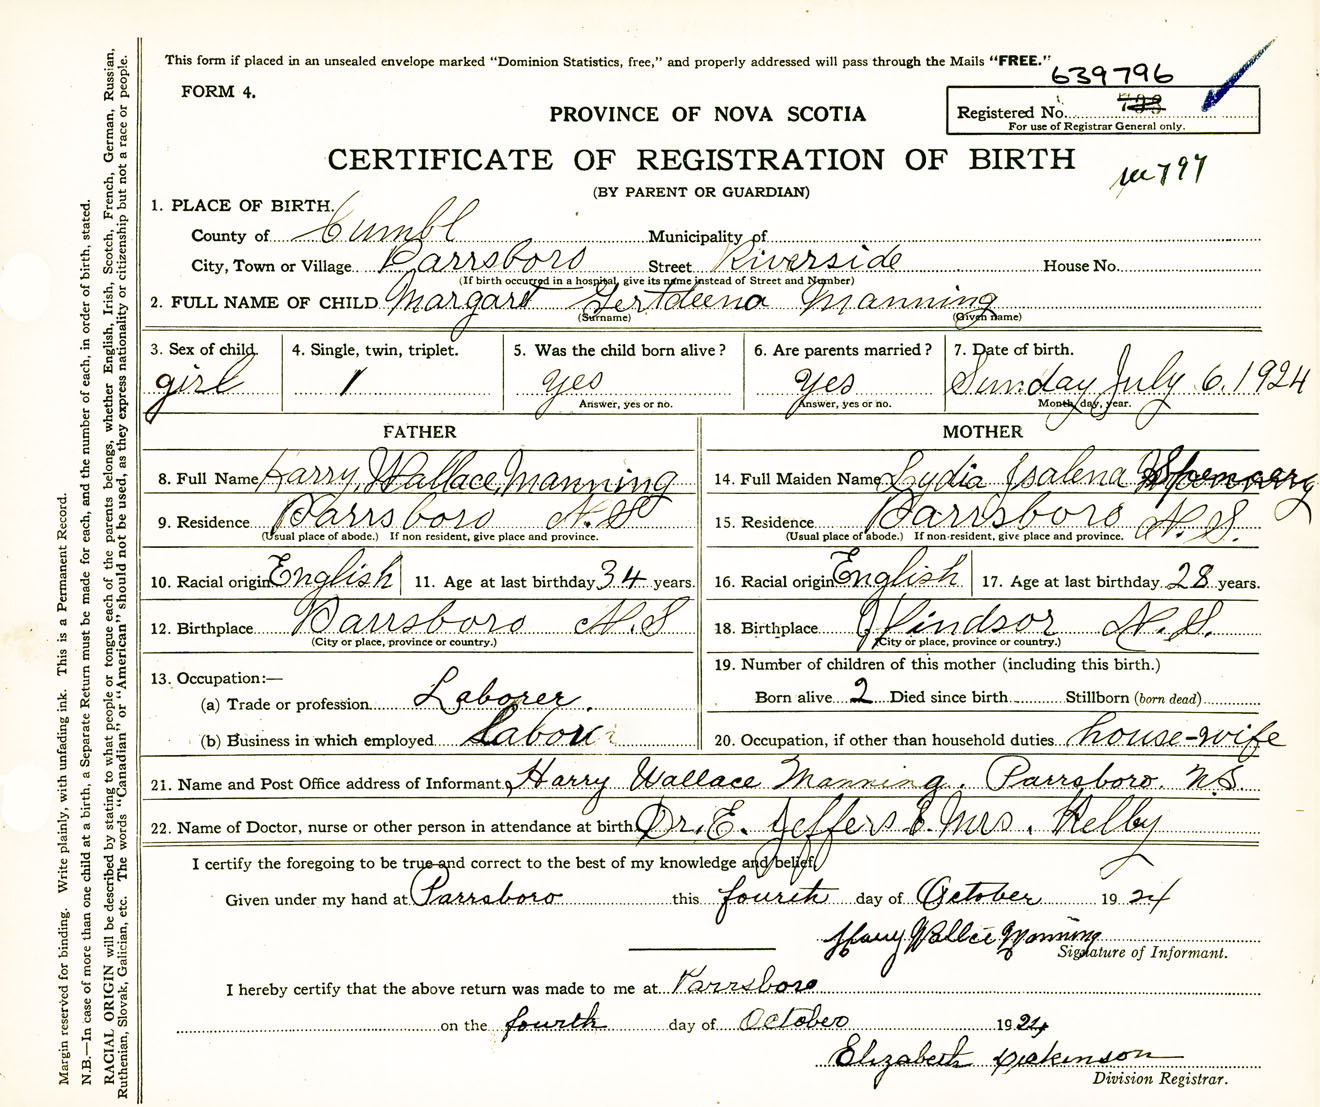 This form if placed in an unsealed envelope marked "Dominion Statistics, free," and properly addressed will pass through the Mails "FREE."
639796
FORM 4.
PROVINCE OF NOVA SCOTIA
Registered No.
For use of Registrar General only.
CERTIFICATE OF REGISTRATION OF BIRTH
797
(BY PARENT OR GUARDIAN)
1. PLACE OF BIRTH.
County of Cumbl Municipality of
City, Town or Village Parrsboro Street Riverside House No.
(If birth occurred in a hospital, give its name instead of Street and Number)
2. FULL NAME OF CHILD Margaret Gertdeena Manning
(Surname) (Given name)
3. Sex of child. 4. Single, twin, triplet. 5. Was the child born alive? 6. Are parents married? 7. Date of birth.
girl 1 yes Yes Sunday July 6. 1924
Answer, yes or no. Answer, yes or no. Month, day, year.
FATHER MOTHER
8. Full Name Harry, Wallace, Manning 14. Full Maiden Name Lydia Isalena
9. Residence Parrsboro N.S 15. Residence Parrsboro N.S.
(Usual place of abode.) If non resident, give place and province. (Usual place of abode.) If non-resident, give place and province.
10. Racial origin English 11. Age at last birthday 34 years. 16. Racial origin English 17. Age at last birthday 28 years.
12. Birthplace Parrsboro N.S 18. Birthplace Windsor N.S.
(City or place, province or country.) (City or place, province or country.)
13. Occupation:— 19. Number of children of this mother (including this birth.)
(a) Trade or profession Laborer. Born alive 2 Died since birth Stillborn (born dead)
(b) Business in which employed Labour 20. Occupation, if other than household duties house-wife
21. Name and Post Office address of Informant Harry Wallace Manning. Parrsboro. N.S
22. Name of Doctor, nurse or other person in attendance at birth Dr. E. Jeffers & Mrs. Kelby
I certify the foregoing to be true and correct to the best of my knowledge and belief.
Given under my hand at Parrsboro this fourth day of October 1924
Harry Wallace Manning
Signature of Informant.
I hereby certify that the above return was made to me at Parrsboro
on the fourth day of October 1924
Elizabeth Dickinson
Division Registrar.
Margin reserved for binding. Write plainly, with unfading ink. This is a Permanent Record.
N.B.—In case of more than one child at a birth, a Separate Return must be made for each, and the number of each, in order of birth, stated.
RACIAL ORIGIN will be described by stating to what people or tongue each of the parents belongs, whether English, Irish, Scotch, French, German, Russian,
Ruthenian, Slovak, Galician, etc. The words "Canadian" or "American" should not be used, as they express nationality or citizenship but not a race or people.